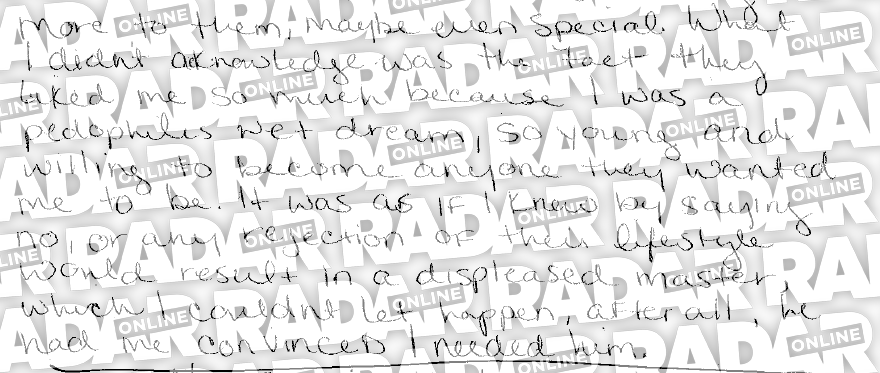 more to them, maybe even special. What
I didn't acknowledge was the fact they
liked me so much because I was a
pedophiles wet dream, so young and
willing to become anyone they wanted
me to be. It was as if I knew by saying
no, or any rejection of their lifestyle
would result in a displeased master,
which I couldn't let happen, after all, he
had me convinced I needed him.